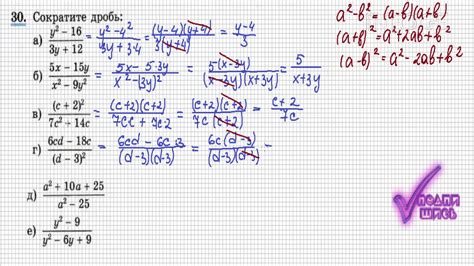 30. Сократите дробь:
а) (y² − 16)/(3y + 12) = (y² − 4²)/(3y + 3·4) = ((y−4)(y+4))/(3(y+4)) = (y−4)/3
б) (5x − 15y)/(x² − 9y²) = (5x − 5·3y)/(x² − (3y)²) = (5(x−3y))/((x−3y)(x+3y)) = 5/(x+3y)
в) (c + 2)²/(7c² + 14c) = ((c+2)(c+2))/(7cc + 7c2) = ((c+2)(c+2))/(7c(c+2)) = (c+2)/7c
г) (6cd − 18c)/(d − 3)² = (6cd − 6c·3)/((d−3)(d−3)) = (6c(d−3))/((d−3)(d−3)) =
д) (a² + 10a + 25)/(a² − 25)
е) (y² − 9)/(y² − 6y + 9)
a² − b² = (a−b)(a+b)
(a+b)² = a² + 2ab + b²
(a−b)² = a² − 2ab + b²
ПОДПИ
ШИСЬ